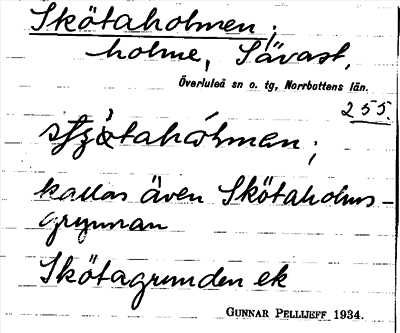 Skötaholmen;
holme, Sävast,
Överluleå sn o. tg, Norrbottens län.
255.
kallas även Skötaholms-
grynnan
Skötagrunden ek
GUNNAR PELLIJEFF 1934.